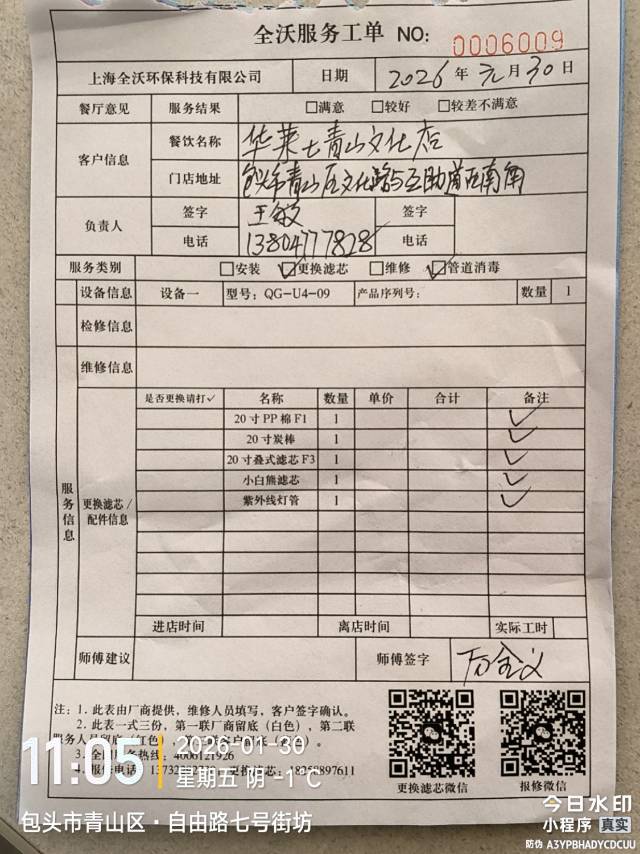 全沃服务工单 NO: 0006009
上海全沃环保科技有限公司 日期 2026年 元月 30日
餐厅意见 服务结果 □满意 □较好 □较差不满意
客户信息 餐饮名称 华莱士青山文化店
门店地址 包头市青山区文化路与互助道西南角
负责人 签字 王敏 签字
电话 13804777828 电话
服务类别 □安装 ☑更换滤芯 □维修 ☑管道消毒
设备信息 设备一 型号: QG-U4-09 产品序列号: 数量 1
检修信息
维修信息
服务信息 更换滤芯/配件信息
是否更换请打✓ 名称 数量 单价 合计 备注
20寸PP棉F1 1 ✓
20寸炭棒 1 ✓
20寸叠式滤芯F3 1 ✓
小白熊滤芯 1 ✓
紫外线灯管 1 ✓
进店时间 离店时间 实际工时
师傅建议 师傅签字
注: 1. 此表由厂商提供, 维修人员填写, 客户签字确认。
2. 此表一式三份, 第一联厂商留底(白色), 第二联
更换滤芯微信 报修微信
11:05
2026-01-30
星期五 阴 -1℃
包头市青山区·自由路七号街坊
今日水印
小程序 真实
防伪 A3YPBHADYCDCUU